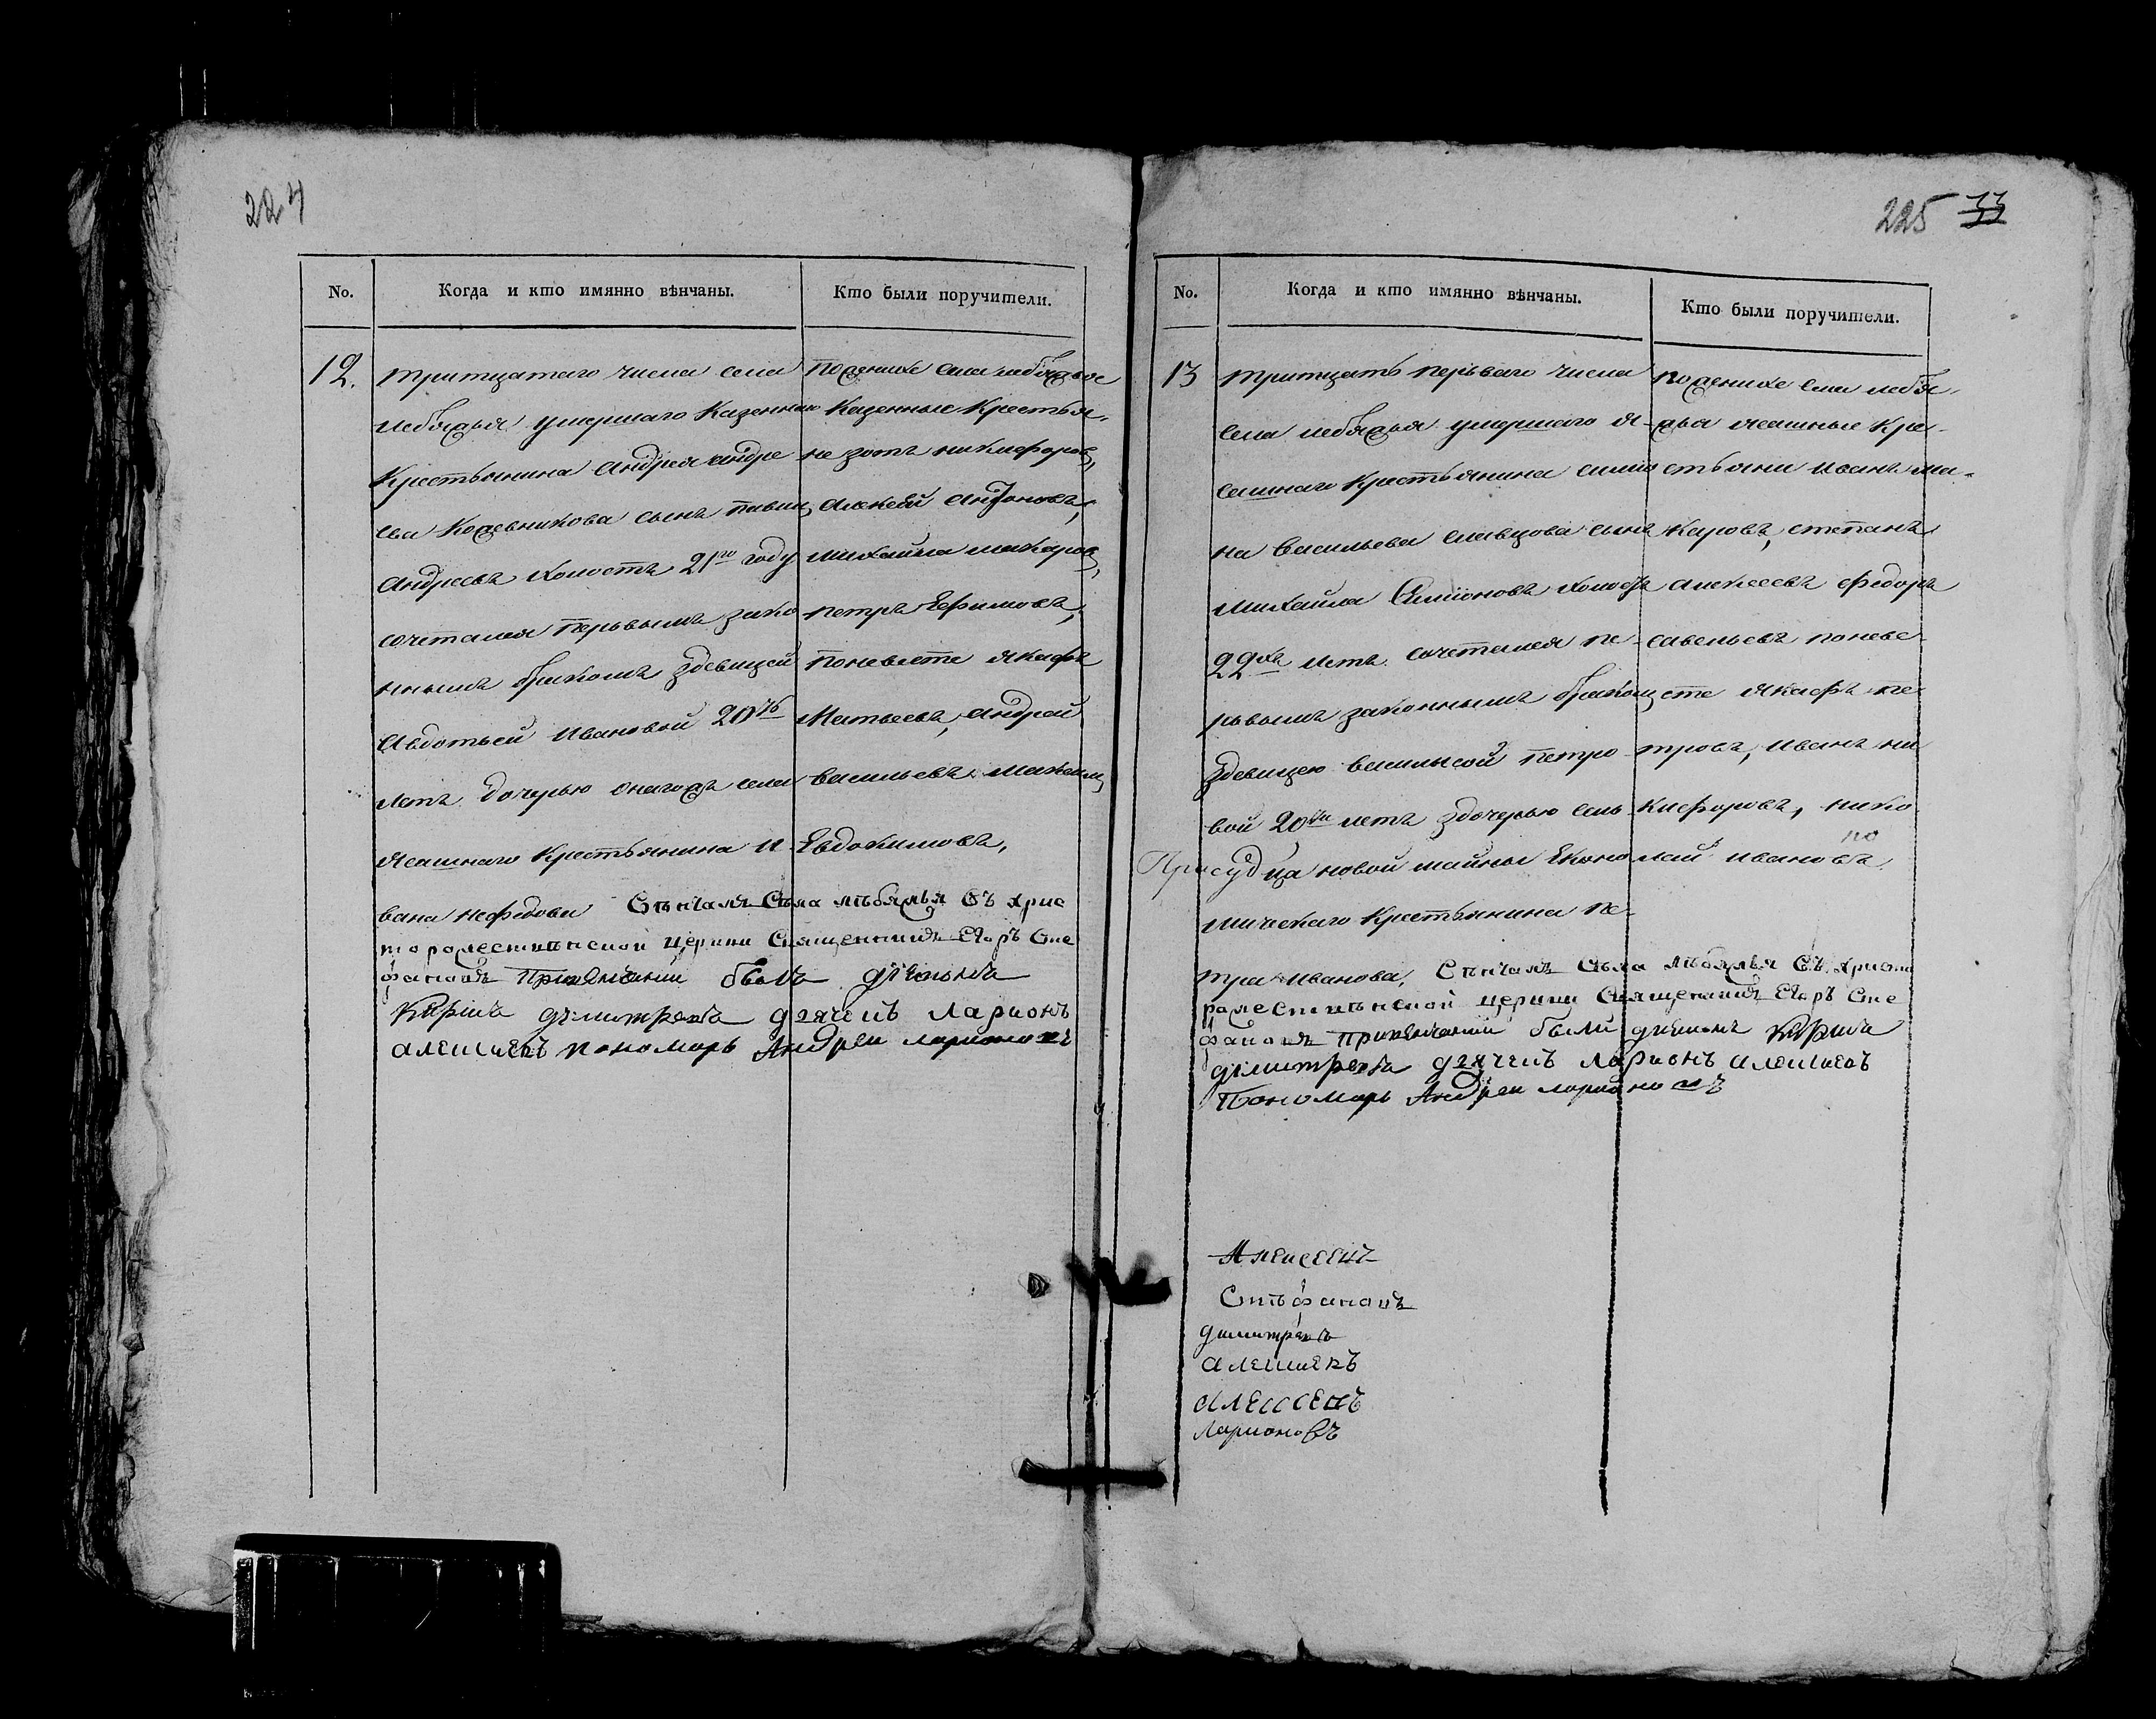 224
No.
Когда и кто имянно вѣнчаны.
Кто были поручители.
12.
тритцатаго числа села
лебяжья умершаго казеннаго
крестьянина андрея андре
ева кожевникова сынъ павил
андреевъ холостъ 21го году
сочетался перьвымъ зако
ннымъ бракомъ здевицей
Авдотьей ивановой 20ть
летъ дочерью оногожъ села
ясашнаго крестьянина и
вана нефедова
по женихе села лебяжье
казенные крестья,
не зотъ никифоровъ,
алексей антоновъ,
михайла макаровъ,
петръ Ефимовъ,
поневесте якафъ
Матвеевъ, андрей
васильевъ, максим
Евдокимовъ,
Вѣнчалъ Села лѣбяжья Съ хрис
торожественской церкви Священникъ Егоръ Сте
фановъ при венчании былъ дьяконъ
Кирила димитревъ дячекъ Ларионъ
алексеевъ пономарь Андреи ларионовъ
225 33
No.
Когда и кто имянно вѣнчаны.
Кто были поручители.
13
тритцать перьваго числа
села лебяжья умершаго я-
сашнаго крестьянина симио
на васильева славцова сынъ
михайла Симионовъ холостъ
22хъ летъ сочетался пе-
рьвымъ законнымъ бракомъ
здевицею василисой петро
вой 20ти летъ здочерью сель
ца новой майны Еконо
мическаго крестьянина пе-
тра иванова,
по женихе села лебя-
жья ясашные кре-
стьяни иванъ ма-
каровъ, степанъ
алексеевъ федоръ
савельевъ поневе-
сте якафъ пе-
тровъ, иванъ ни
кифоровъ, нико
лай ивановъ,
по
Присуд
Вѣнчалъ Села лѣбяжья Съ Христо
рожественской церкви Священникъ Егоръ Сте
фановъ при венчании были дияконъ Кирила
димитревъ дячекъ Ларионъ алексеевъ
Пономарь Андреи ларионовъ
Алексеевъ
Стѣфановъ
димитревъ
алексиевъ
алексеевъ
Ларионовъ